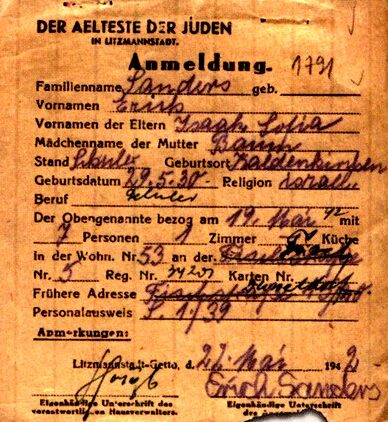 DER AELTESTE DER JUDEN
IN LITZMANNSTADT.
Anmeldung. 1791
Familienname Sanders geb.
Vornamen Erich
Vornamen der Eltern Isaak Sofia
Mädchenname der Mutter Baum
Stand Schüler Geburtsort Kaldenkirchen
Geburtsdatum 29.5.30. Religion israel.
Beruf Schüler
Der Obengenannte bezog am 19. Mai 42 mit
7 Personen 1 Zimmer Küche
in der Wohn. Nr. 53 an der
Nr. 5 Reg. Nr. Karten Nr.
Frühere Adresse
Personalausweis 1/39
Anmerkungen:
Litzmannstadt-Getto, d. 22. Mai 1942
Erich Sanders
Eigenhändige Unterschrift des
verantwortlichen Hausverwalters.
Eigenhändige Unterschrift